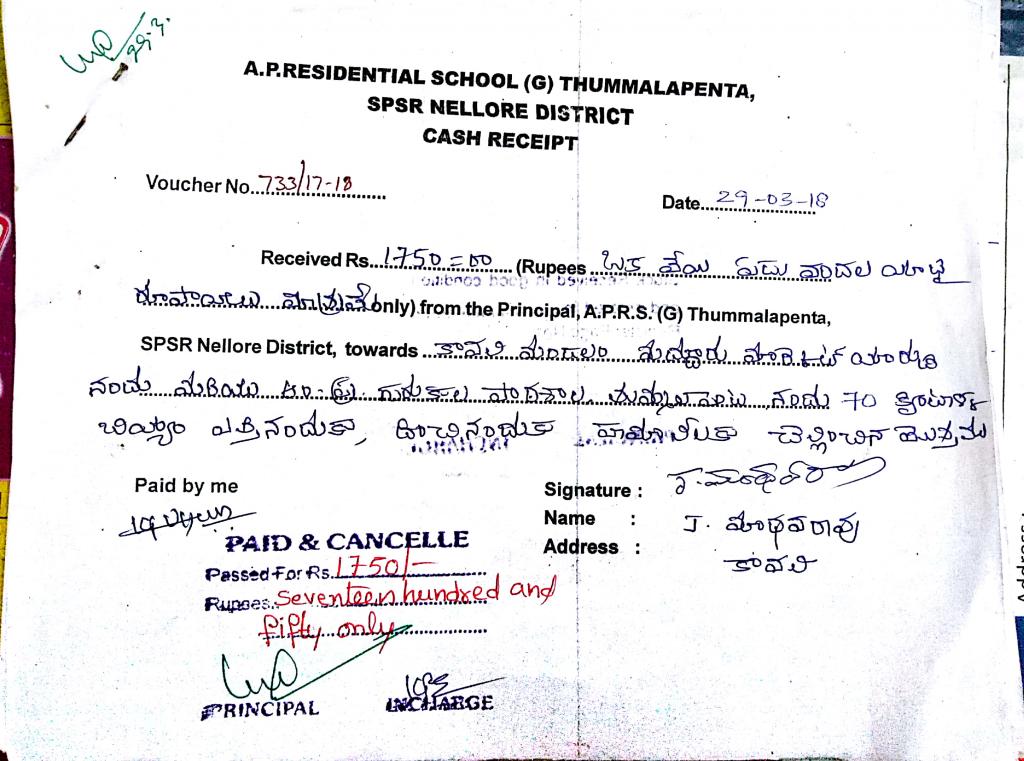 29.3.
A.P.RESIDENTIAL SCHOOL (G) THUMMALAPENTA,
SPSR NELLORE DISTRICT
CASH RECEIPT
Voucher No. 733/17-18
Date 29-03-18
Received Rs. 1750=00 (Rupees ఒక వేయి ఏడు వందల యాభై
రూపాయలు మాత్రమే only) from the Principal, A.P.R.S. (G) Thummalapenta,
SPSR Nellore District, towards కావలి మండలం మద్దూరు మార్కెట్ యార్డు
నందు మరియు ఆం.ప్ర గురుకుల పాఠశాల, తుమ్మలపెంట నందు 70 క్వింటాళ్ళ
బియ్యం ఎత్తినందుకు, దించినందుకు హమాలీలకు చెల్లించిన మొత్తము
Paid by me
Signature :
Name : J. మాధవరావు
Address : కావలి
PAID & CANCELLE
Passed For Rs. 1750/-
Rupees Seventeen hundred and
fifty only
PRINCIPAL INCHARGE
Address :